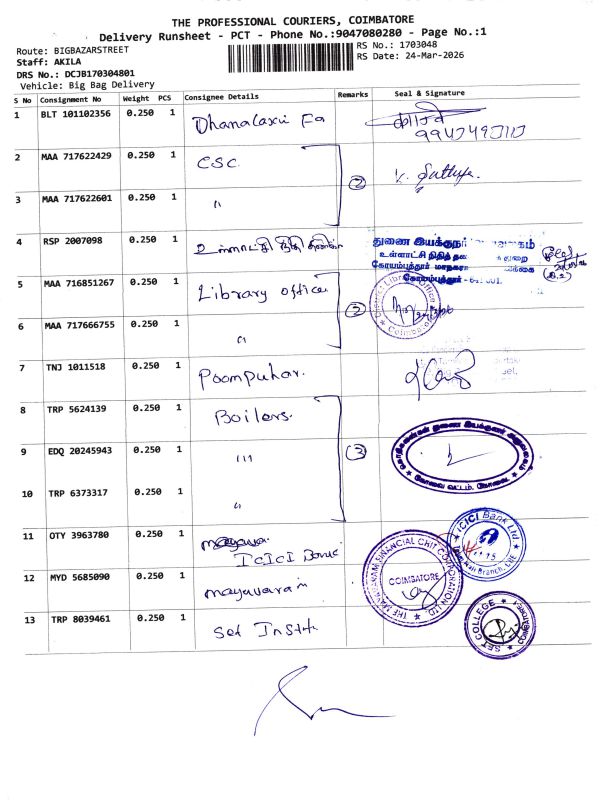 THE PROFESSIONAL COURIERS, COIMBATORE
Delivery Runsheet - PCT - Phone No.:9047080280 - Page No.:1
Route: BIGBAZARSTREET
RS No.: 1703048
Staff: AKILA
RS Date: 24-Mar-2026
DRS No.: DCJB170304801
Vehicle: Big Bag Delivery
S No Consignment No Weight PCS Consignee Details Remarks Seal & Signature
1 BLT 101102356 0.250 1 Dhanalaxmi Fa
2 MAA 717622429 0.250 1 CSC
3 MAA 717622601 0.250 1 "
2
4 RSP 2007098 0.250 1
துணை இயக்குநர்
உள்ளாட்சி நிதித் துறை
கோயம்புத்தூர்
5 MAA 716851267 0.250 1 Library office
6 MAA 717666755 0.250 1 "
2
District Library Officer
Coimbatore
7 TNJ 1011518 0.250 1 Poompuhar.
8 TRP 5624139 0.250 1 Boilers.
9 EDQ 20245943 0.250 1 "
10 TRP 6373317 0.250 1 "
3
11 OTY 3963780 0.250 1 ICICI Bank
ICICI Bank Ltd.
Branch, CBE
12 MYD 5685090 0.250 1 mayavaram
THE MAYAVARAM FINANCIAL CHIT CORPORATION LTD
COIMBATORE
13 TRP 8039461 0.250 1 Set Instit
SET COLLEGE